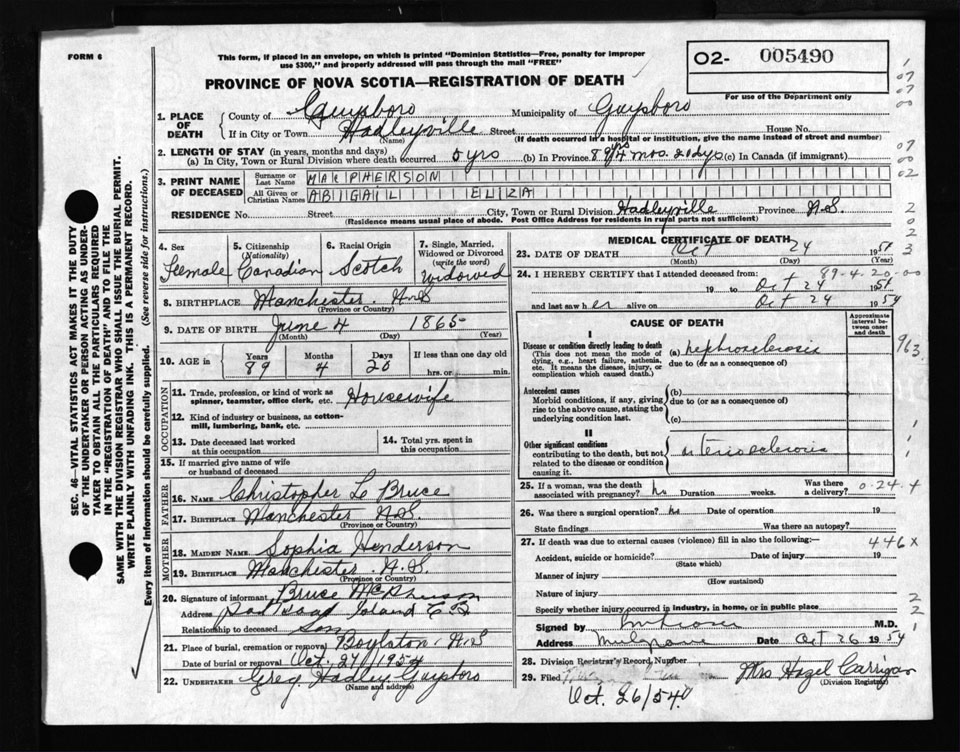 FORM 6
This form, if placed in an envelope, on which is printed "Dominion Statistics—Free, penalty for improper
use $300," and properly addressed will pass through the mail "FREE"
PROVINCE OF NOVA SCOTIA—REGISTRATION OF DEATH
O2- 005490
For use of the Department only
1. PLACE OF DEATH County of Guysboro Municipality of Guysboro
If in City or Town Hadleyville Street House No.
(Name) (If death occurred in a hospital or institution, give the name instead of street and number)
2. LENGTH OF STAY (in years, months and days)
(a) In City, Town or Rural Division where death occurred 5 yrs (b) In Province 89 yrs 4 mos. 20 dys (c) In Canada (if immigrant)
3. PRINT NAME OF DECEASED Surname or Last Name MACPHERSON
All Given or Christian Names ABIGAIL ELIZA
RESIDENCE No. Street City, Town or Rural Division Hadleyville Province N.S.
(Residence means usual place of abode. Post Office Address for residents in rural parts not sufficient)
4. Sex Female
5. Citizenship (Nationality) Canadian
6. Racial Origin Scotch
7. Single, Married, Widowed or Divorced (write the word) Widowed
8. BIRTHPLACE Manchester N.S.
(Province or Country)
9. DATE OF BIRTH June 4 1865
(Month) (Day) (Year)
10. AGE in Years 89 Months 4 Days 20 If less than one day old hrs. or min.
OCCUPATION
11. Trade, profession, or kind of work as spinner, teamster, office clerk, etc. Housewife
12. Kind of industry or business, as cotton-mill, lumbering, bank, etc.
13. Date deceased last worked at this occupation
14. Total yrs. spent in this occupation
15. If married give name of wife or husband of deceased
FATHER
16. NAME Christopher L Bruce
17. BIRTHPLACE Manchester N.S.
(Province or Country)
MOTHER
18. MAIDEN NAME Sophia Henderson
19. BIRTHPLACE Manchester N.S.
(Province or Country)
20. Signature of informant Bruce McPherson
Address Island
Relationship to deceased Son
21. Place of burial, cremation or removal Boylston N.S
Date of burial or removal Oct. 27/1954
22. UNDERTAKER Greg Hadley Guysboro
(Name and address)
MEDICAL CERTIFICATE OF DEATH
23. DATE OF DEATH Oct 24 1954
(Month) (Day) (Year)
24. I HEREBY CERTIFY that I attended deceased from: 89-4-20-00
19 to Oct 24 1954
and last saw her alive on Oct 24 1954
CAUSE OF DEATH
Approximate interval between onset and death
I
Disease or condition directly leading to death (a) nephrosclerosis
(This does not mean the mode of dying, e.g., heart failure, asthenia, etc. It means the disease, injury, or complication which caused death.)
due to (or as a consequence of)
Antecedent causes (b)
Morbid conditions, if any, giving rise to the above cause, stating the underlying condition last.
due to (or as a consequence of)
(c)
II
Other significant conditions contributing to the death, but not related to the disease or condition causing it.
arteriosclerosis
25. If a woman, was the death associated with pregnancy? no Duration weeks. Was there a delivery? 0-24-+
26. Was there a surgical operation? no Date of operation 19
State findings Was there an autopsy?
27. If death was due to external causes (violence) fill in also the following:— 446 x
Accident, suicide or homicide? Date of injury 19
(State which)
Manner of injury
(How sustained)
Nature of injury
Specify whether injury occurred in industry, in home, or in public place
Signed by M.D.
Address Mulgrave Date Oct 26 1954
28. Division Registrar's Record Number
29. Filed Oct. 26/54 Mrs Hazel Carrigan
(Division Registrar)
SEC. 46—VITAL STATISTICS ACT MAKES IT THE DUTY
OF THE UNDERTAKER OR PERSON ACTING AS UNDER-
TAKER TO OBTAIN ALL THE PARTICULARS REQUIRED
IN THE "REGISTRATION OF DEATH" AND TO FILE THE
SAME WITH THE DIVISION REGISTRAR WHO SHALL ISSUE THE BURIAL PERMIT.
WRITE PLAINLY WITH UNFADING INK. THIS IS A PERMANENT RECORD.
Every item of information should be carefully supplied. (See reverse side for instructions.)
1
07
07
00
07
00
02
2
0
2
3
963
1
1
2
2
1